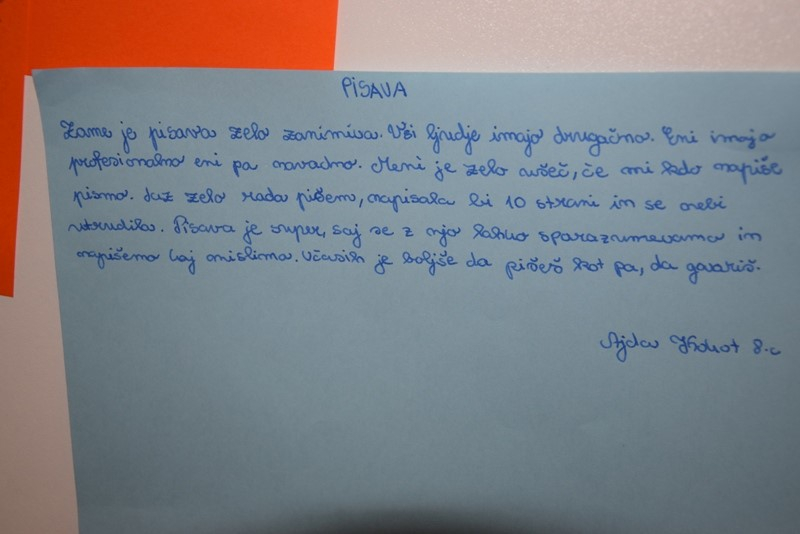 PISAVA
Zame je pisava zelo zanimiva. Vsi ljudje imajo drugačno. Eni imajo
profesionalno eni pa navadno. Meni je zelo všeč, če mi kdo napiše
pismo. Jaz zelo rada pišem, napisala bi 10 strani in se nebi
utrudila. Pisava je super, saj se z njo lahko sporazumevamo in
napišemo kaj mislimo. Včasih je boljše da pišeš kot pa, da govoriš.
Ajda 8.c